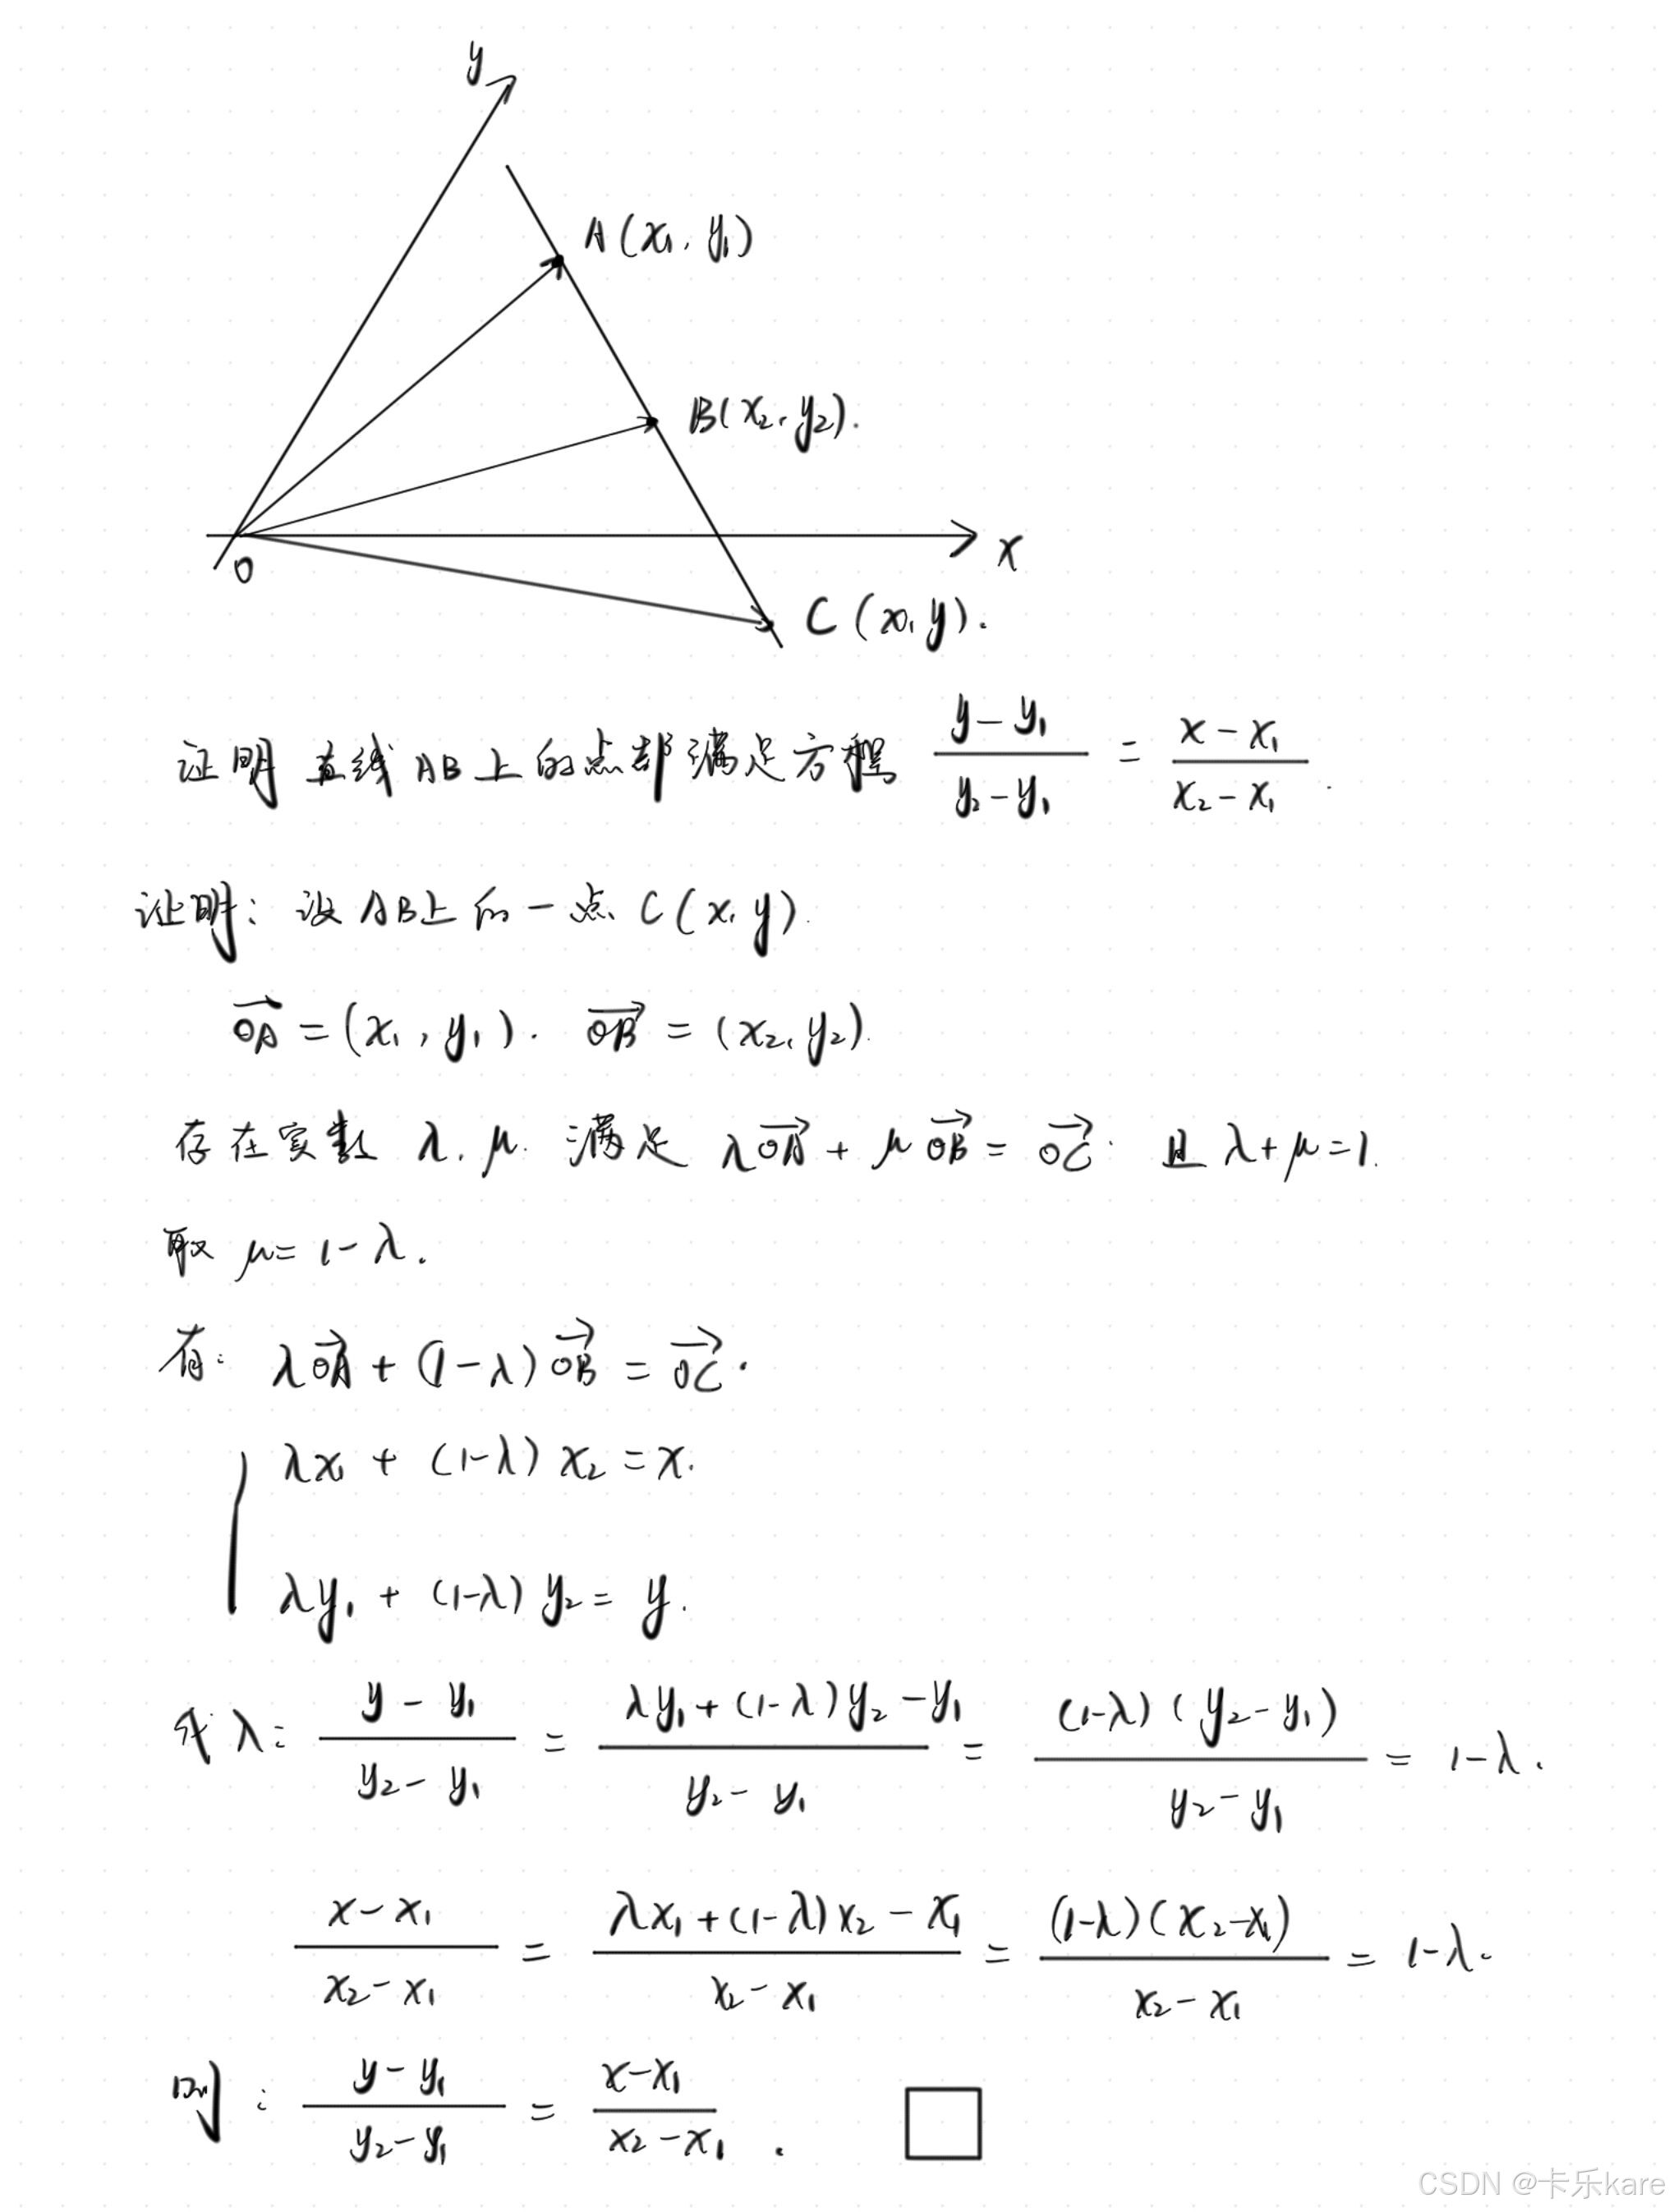 y
A(x₁, y₁)
B(x₂, y₂).
O
x
C(x, y).
证明 直线 AB 上的点都满足方程 (y-y₁)/(y₂-y₁) = (x-x₁)/(x₂-x₁).
证明: 设 AB上的一点 C(x, y).
→OA = (x₁, y₁). →OB = (x₂, y₂).
存在实数 λ, μ. 满足 λ→OA + μ→OB = →OC. 且 λ+μ=1.
取 μ=1-λ.
有: λ→OA + (1-λ)→OB = →OC.
λx₁ + (1-λ)x₂ = x.
λy₁ + (1-λ)y₂ = y.
代 λ: (y-y₁)/(y₂-y₁) = (λy₁+(1-λ)y₂-y₁)/(y₂-y₁) = ((1-λ)(y₂-y₁))/(y₂-y₁) = 1-λ.
(x-x₁)/(x₂-x₁) = (λx₁+(1-λ)x₂-x₁)/(x₂-x₁) = ((1-λ)(x₂-x₁))/(x₂-x₁) = 1-λ.
则: (y-y₁)/(y₂-y₁) = (x-x₁)/(x₂-x₁). □
CSDN @卡乐kare